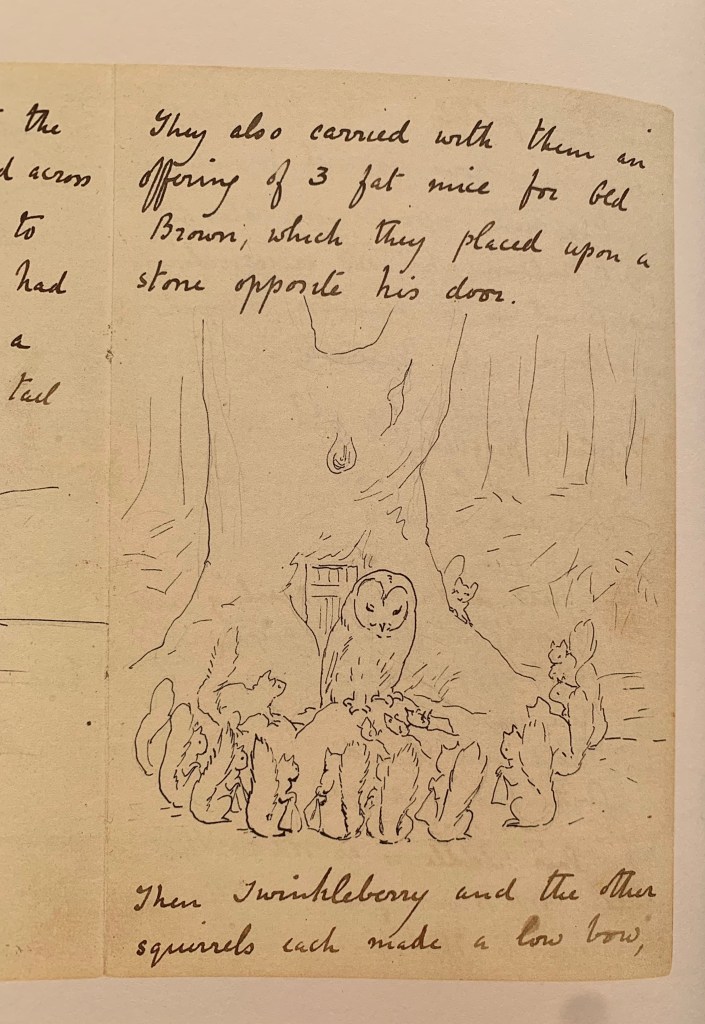 the
across
to
had
a
tail
They also carried with them an
offering of 3 fat mice for Old
Brown, which they placed upon a
stone opposite his door.
Then Twinkleberry and the other
squirrels each made a low bow,